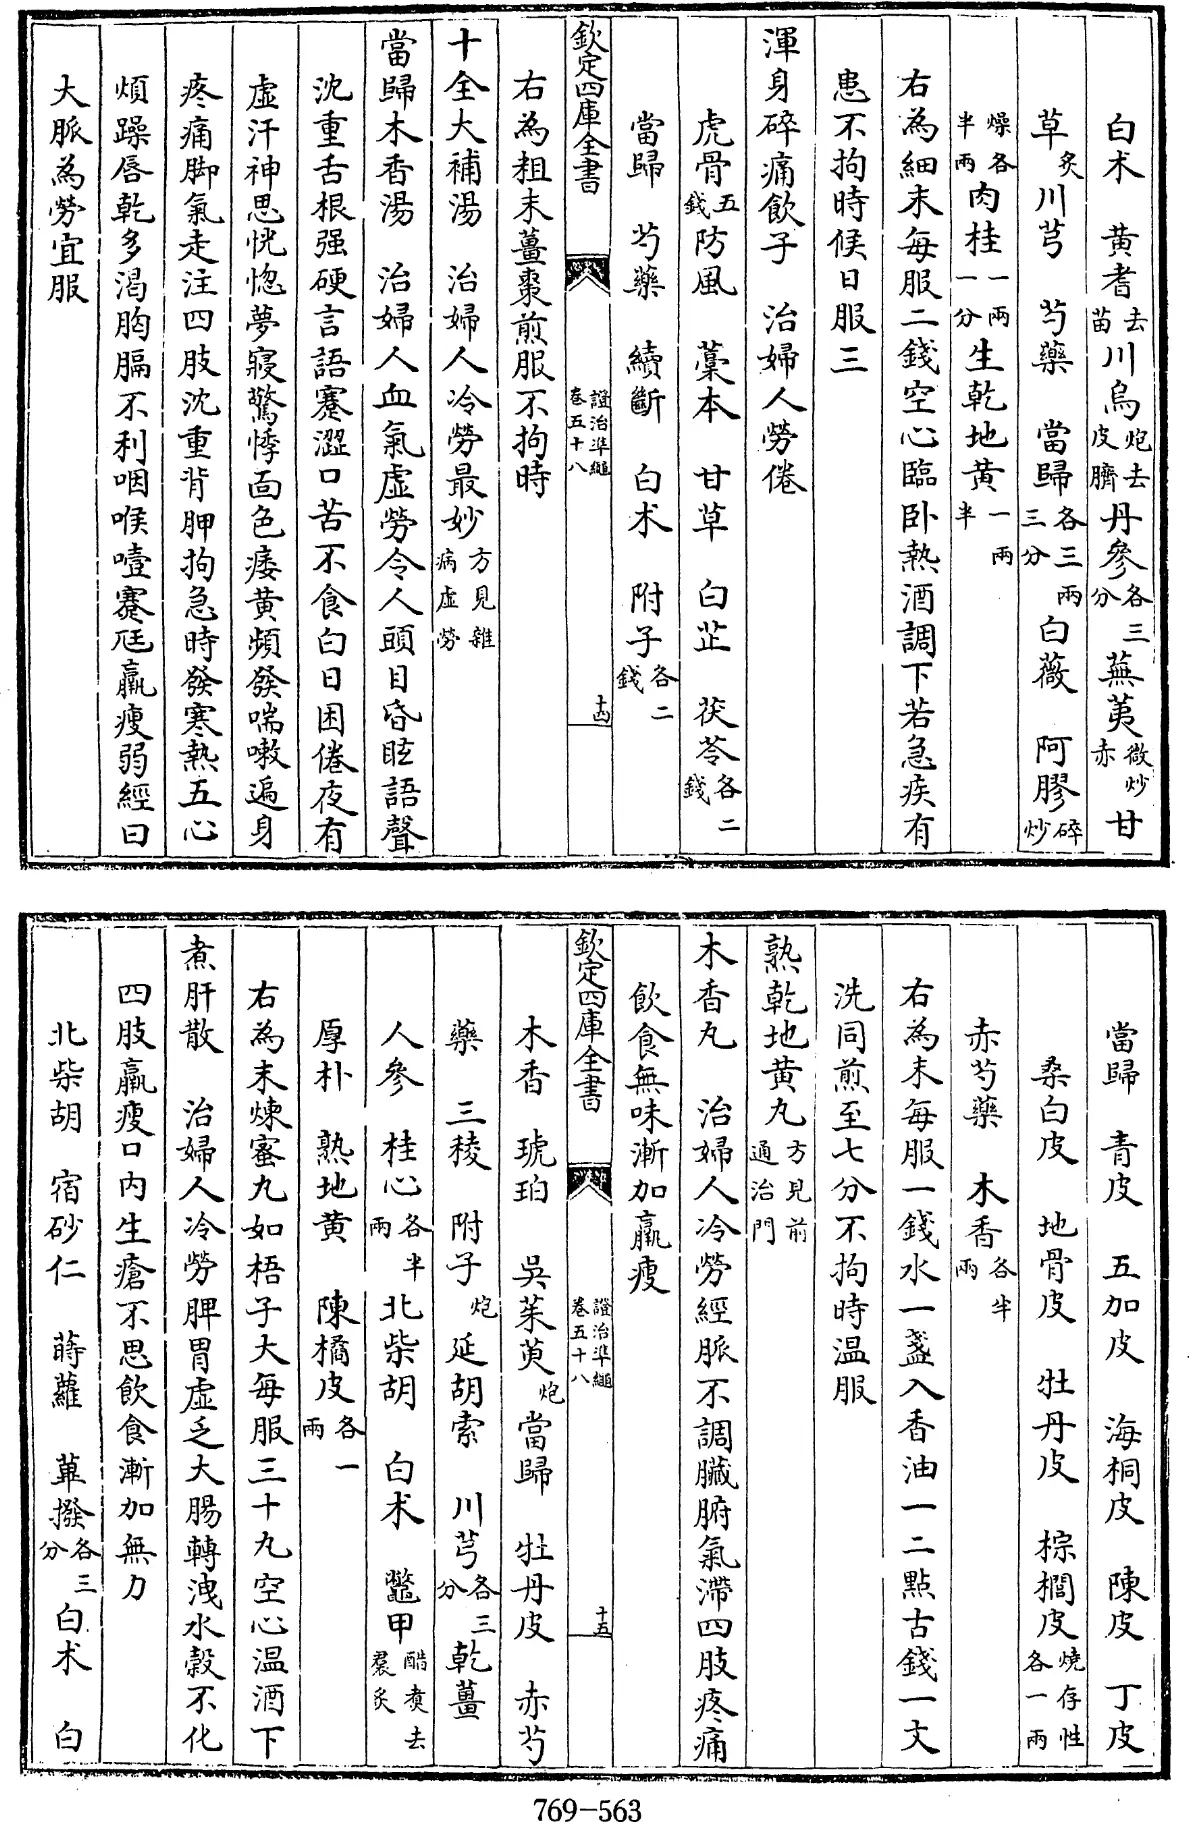 白朮　黄耆去苗川烏炮去皮臍丹參各三分蕪荑微炒赤甘
草炙川芎　芍藥　當歸各三兩三分白薇　阿膠碎炒
燥各半兩肉桂一兩一分生乾地黄一兩半
右為細末每服二錢空心臨卧熱酒調下若急疾有
患不拘時候日服三
渾身碎痛飲子　治婦人勞倦
虎骨五錢防風　藁本　甘草　白芷　茯苓各二錢
當歸　芍藥　續斷　白朮　附子各二錢
欽定四庫全書　證治準繩卷五十八　十四
右為粗末薑棗煎服不拘時
十全大補湯　治婦人冷勞最妙方見雜病虛勞
當歸木香湯　治婦人血氣虛勞令人頭目昏眩語聲
沈重舌根强硬言語蹇澀口苦不食白日困倦夜有
虛汗神思恍惚夢寢驚悸面色痿黄頻發喘嗽遍身
疼痛脚氣走注四肢沈重背胛拘急時發寒熱五心
煩躁唇乾多渴胸膈不利咽喉噎塞尫羸瘦弱經曰
大脈為勞宜服
當歸　青皮　五加皮　海桐皮　陳皮　丁皮
桑白皮　地骨皮　牡丹皮　棕櫚皮燒存性各一兩
赤芍藥　木香各半兩
右為末每服一錢水一盞入香油一二點古錢一文
洗同煎至七分不拘時温服
熟乾地黄丸方見前通治門
木香丸　治婦人冷勞經脈不調臟腑氣滯四肢疼痛
飲食無味漸加羸瘦
欽定四庫全書　證治準繩卷五十八　十五
木香　琥珀　吳茱萸炮當歸　牡丹皮　赤芍
藥　三稜　附子炮延胡索　川芎各三分乾薑
人參　桂心各半兩北柴胡　白朮　鼈甲醋煑去裙炙
厚朴　熟地黄　陳橘皮各一兩
右為末煉蜜丸如梧子大每服三十丸空心温酒下
煮肝散　治婦人冷勞脾胃虛乏大腸轉洩水穀不化
四肢羸瘦口内生瘡不思飲食漸加無力
北柴胡　宿砂仁　蒔蘿　蓽撥各三分白朮　白
769-563